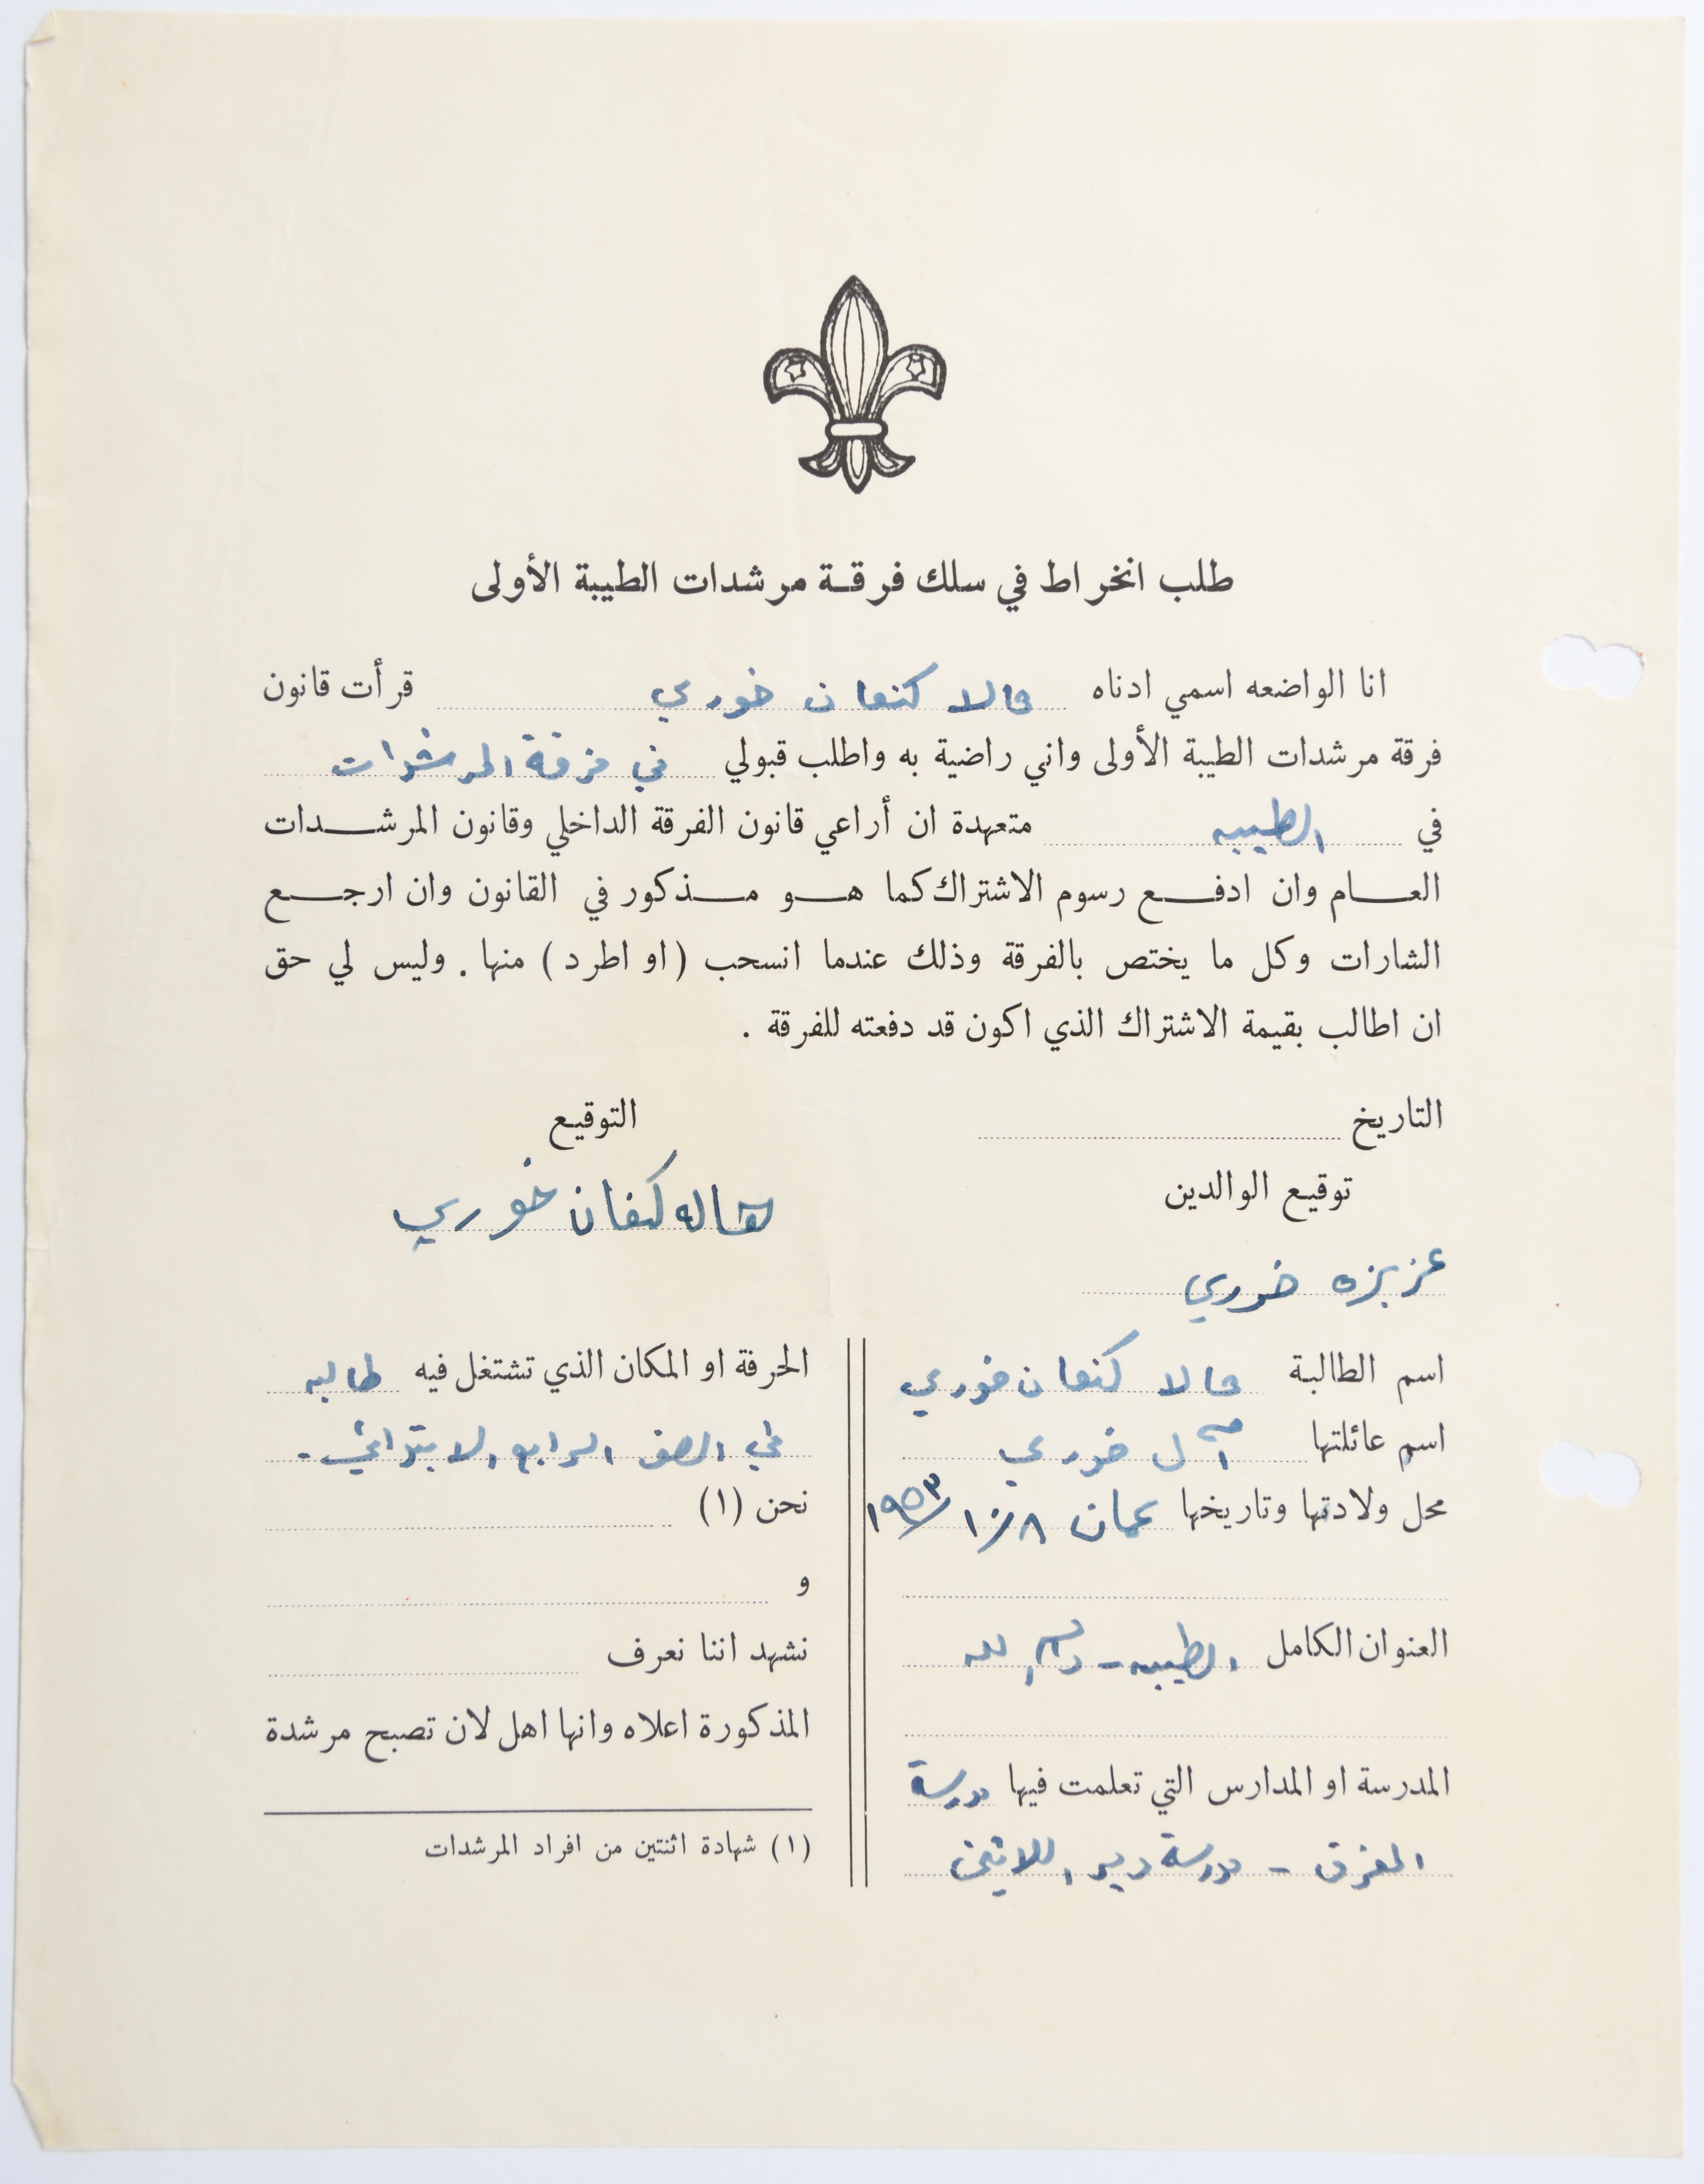 طلب انخراط في سلك فرقة مرشدات الطيبة الأولى
انا الواضعه اسمي ادناه هالا كنعان خوري قرأت قانون
فرقة مرشدات الطيبة الأولى واني راضية به واطلب قبولي في فرقة المرشدات
في الطيبه متعهدة ان أراعي قانون الفرقة الداخلي وقانون المرشدات
العام وان ادفع رسوم الاشتراك كما هو مذكور في القانون وان ارجع
الشارات وكل ما يختص بالفرقة وذلك عندما انسحب (او اطرد) منها . وليس لي حق
ان اطالب بقيمة الاشتراك الذي اكون قد دفعته للفرقة .
التاريخ
التوقيع
هاله كنعان خوري
توقيع الوالدين
عزيزه خوري
اسم الطالبة هالا كنعان خوري
اسم عائلتها آل خوري
محل ولادتها وتاريخها عمان ٨/١٠/١٩٥٣
العنوان الكامل الطيبه - رام الله
المدرسة او المدارس التي تعلمت فيها مدرسة
المفرق - مدرسة دير اللاتين
الحرفة او المكان الذي تشتغل فيه طالبه
في الصف الرابع الابتدائي -
نحن (١)
و
نشهد اننا نعرف
المذكورة اعلاه وانها اهل لان تصبح مرشدة
(١) شهادة اثنتين من افراد المرشدات